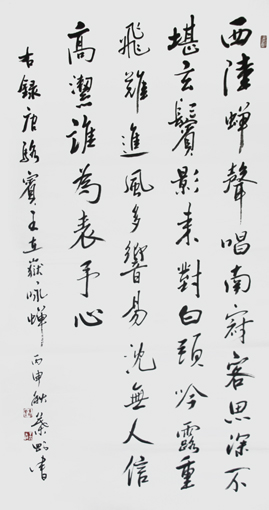 西陸蟬聲唱南冠客思深不
堪玄鬢影来對白頭吟露重
飛難進風多響易沈無人信
高潔誰為表予心
右錄唐駱賓王在獄咏蟬丙申秋蔡 書